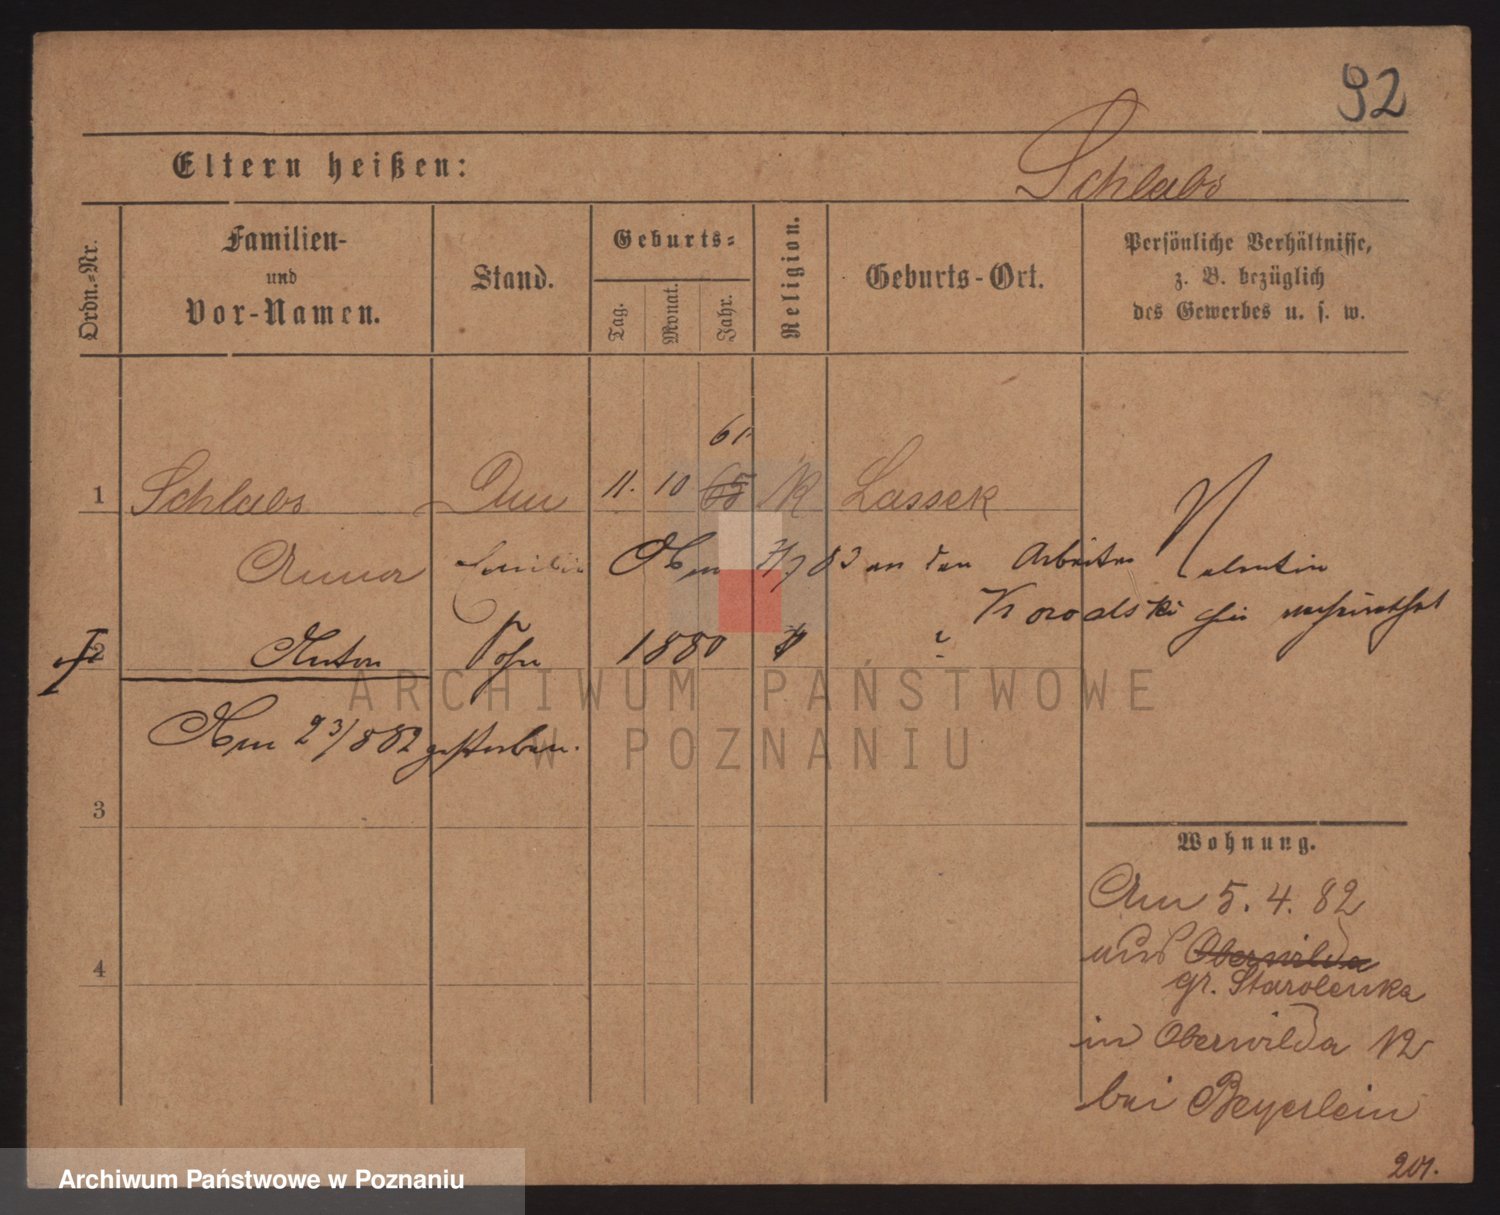 92
Eltern heißen:
Schlabs
Ordn.-Nr.
Familien-
und
Vor-Namen.
Stand.
Geburts-
Tag.
Monat.
Jahr.
Religion.
Geburts-Ort.
Persönliche Verhältnisse,
z. B. bezüglich
des Gewerbes u. s. w.
61
1 Schlabs 11. 10 65 K Lassek
Anna
Am 7/7 83 an den Arbeiter Valentin
hier verheirathet
2 Anton Sohn 1880
Am 23/8 82 gestorben.
3
4
Wohnung.
Am 5. 4. 82
aus Oberwilda
gr. Starolenka
in Oberwilda 12
bei Beyerlein
201.
ARCHIWUM PAŃSTWOWE
W POZNANIU
Archiwum Państwowe w Poznaniu